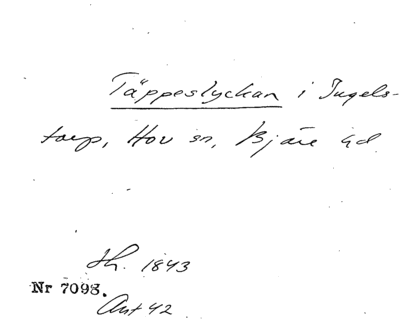 Täppeslyckan i Ingels-
torp, Hov sn, Bjäre hd
Sh. 1843
Nr 7098.
Ant 42